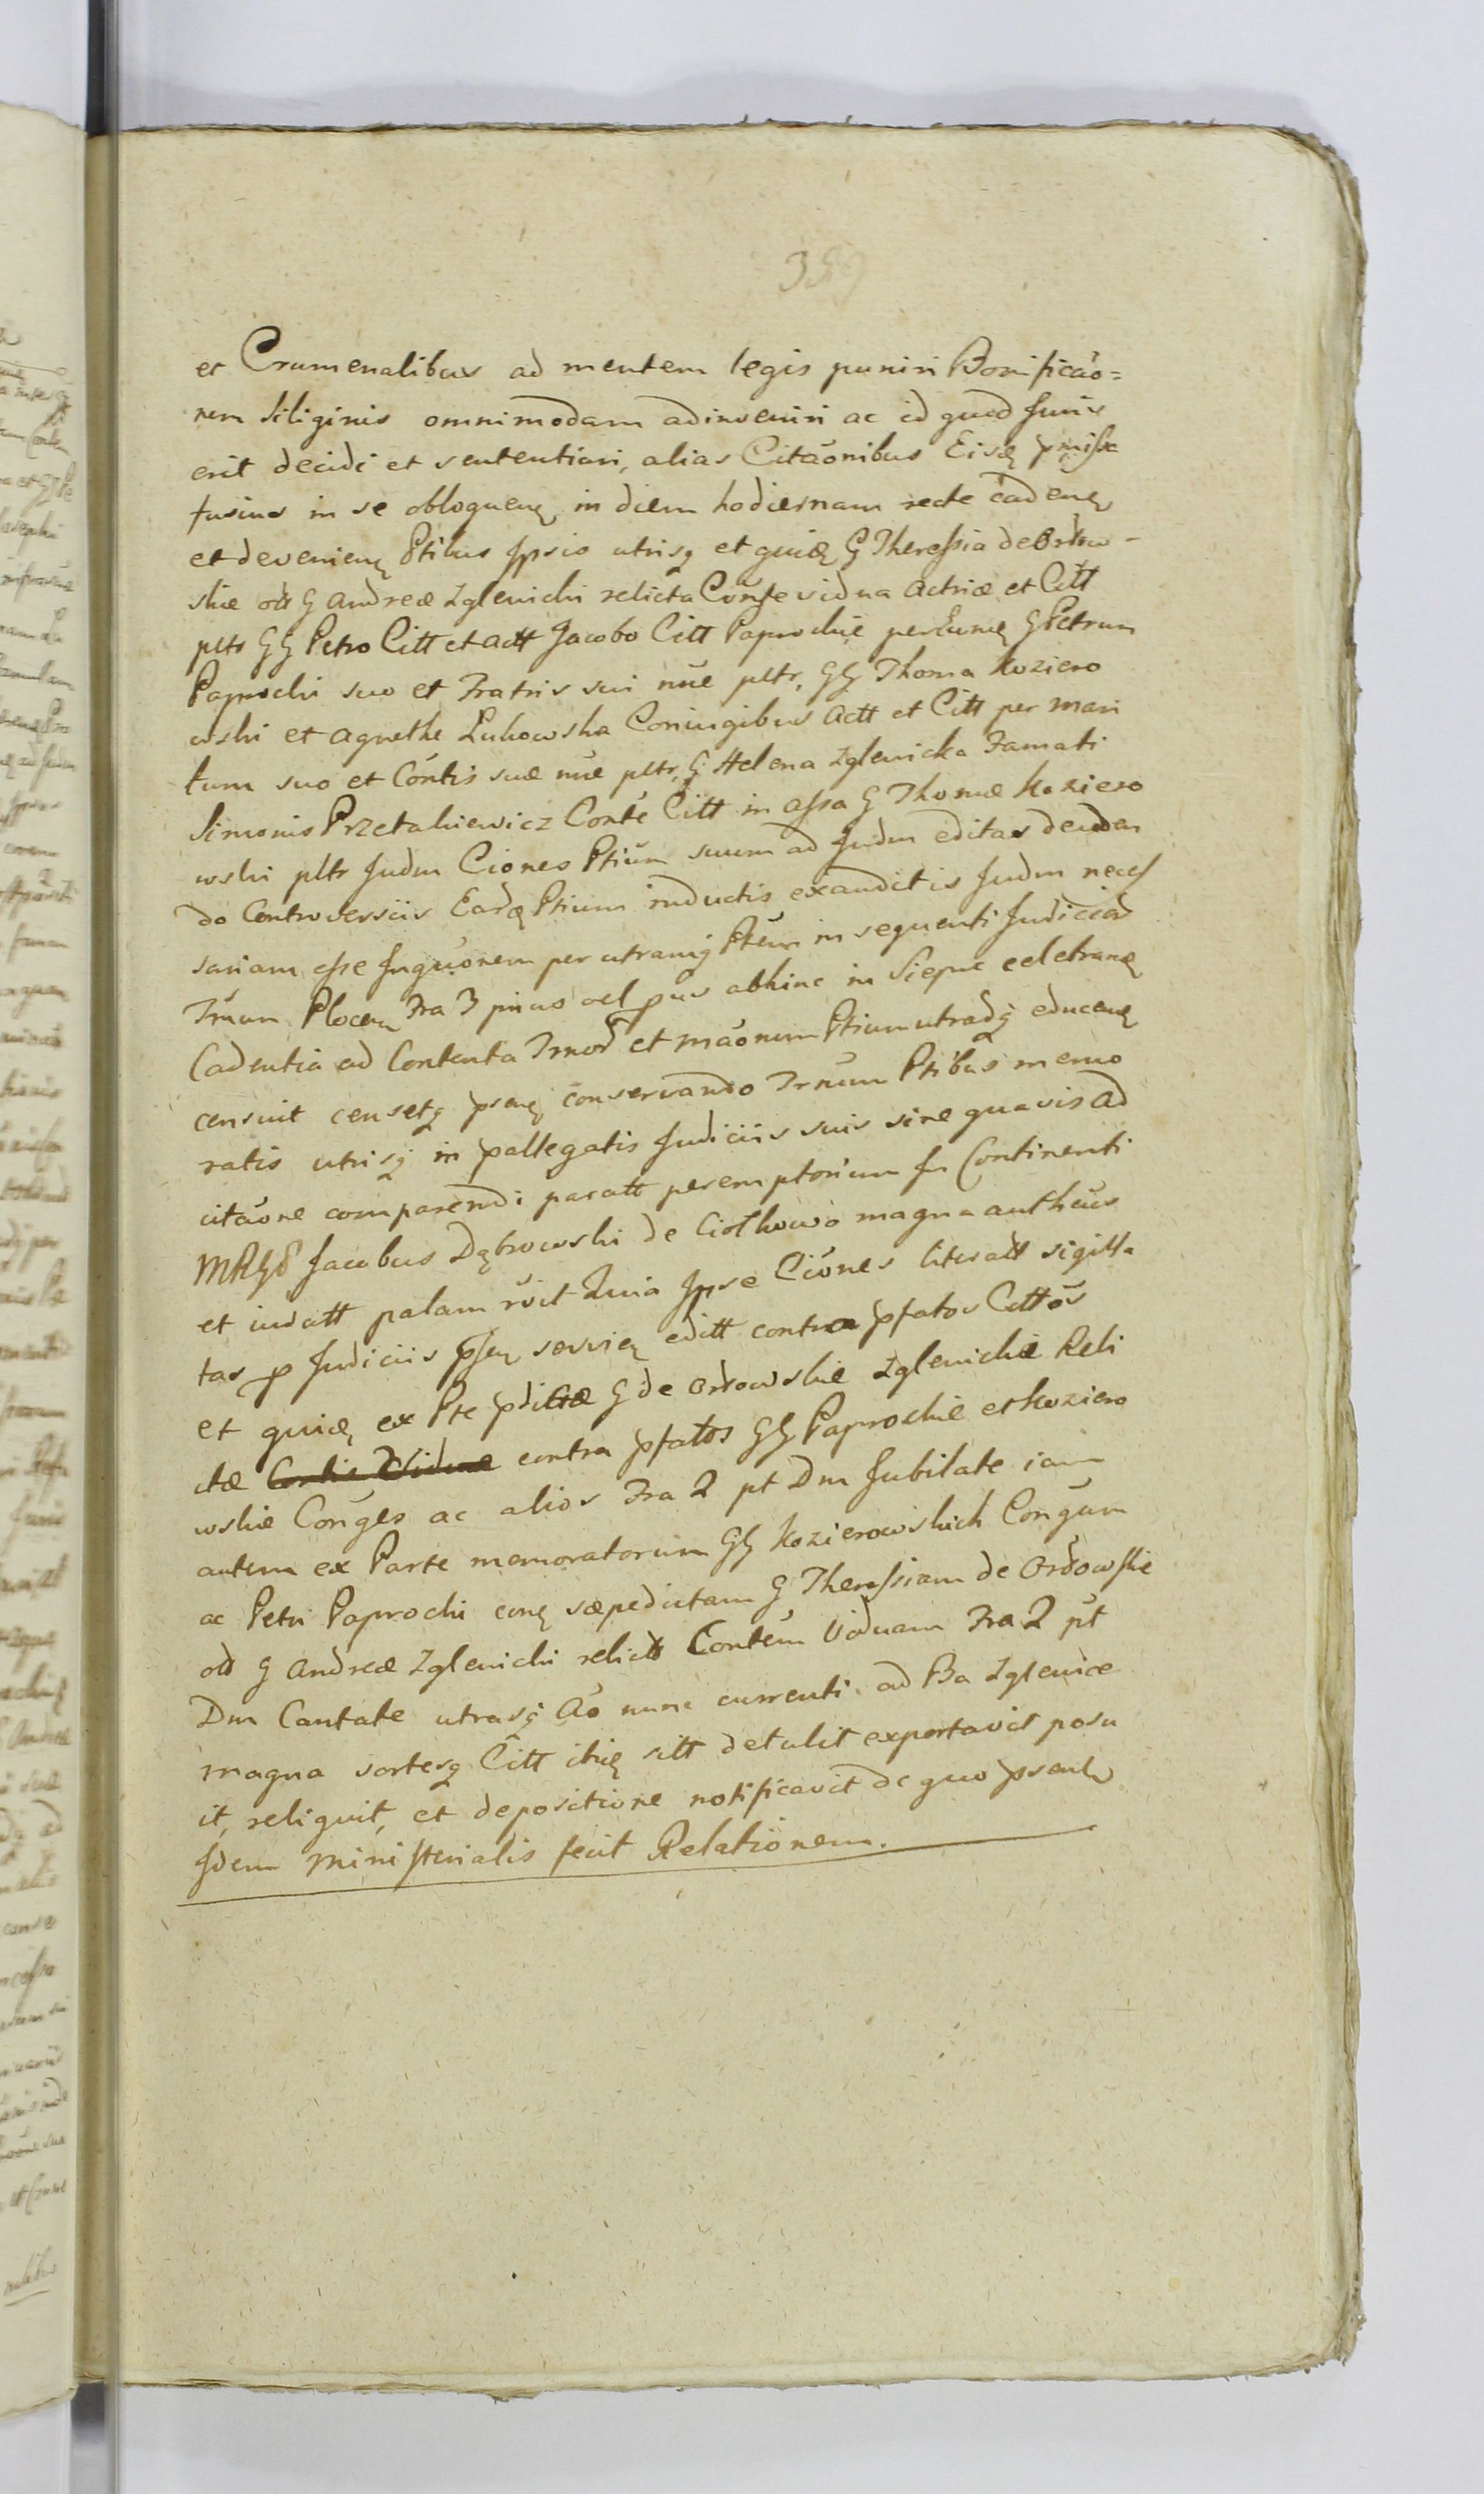 359
et Crumenalibus ad mentem legis puniri Bonificaõ=
nem siliginis omnimodam adinveniri ac id quod Juris
erit decidi et sententiari, alias Citaõnibus Eisdę pmissa
fusius in se obloquenę in diem hodiernam recte cadenę
et devenienę Ptibus Ipsis utrisq et quidę G Theressia de Ordow-
skie olt G Andreæ Zglenicki relicta Conte vidua Actrice et Citt
pltr GG Petro Citt et Actt Jacobo Citt Paprockie per eundę G Petrum
Paprocki suo et Fratris sui nŏe pltr, GG Thoma Koziero
wski et Agnethe Lukowska Coniugibus Actt et Citt per mari
tum suo et Contis suæ nŏe pltr, G Helena Zglenicka Famati
Simonis Przetakiewicz Conte Citt in assa G Thomæ Koziero
wski pltr Judm Ciones Ptium suum ad Judm editas deuden
do Controversiis Eardę Ptium inductis exauditis Judm neces
sariam esse Inquõnem per utramq Ptem in sequenti Judicior
Trrum Plocen Fra 3 prius vel pus abhinc in Siepnc celebranę
Cadentia ad Contenta Trnor et maõnum Ptium utradq educenę
censuit censetq psenę conservando Trnum Ptibus memo
ratis utrisq in pallegatis Judiciis suis sine quavis ad
citaõne comparendi paratt peremptorium In Continenti
MRGD Jacobus Dąbrowski de Ciołkowo magna authcus
et iuratt palam rŏvit Quia Ipse Ciŏnes literatt sigilla
tas p Judiciis psen servien editt contra pfatos Cittŏs
et quidę ex Pte pdictæ G de Ordowskie Zglenickie Reli
ctæ Contis Viduæ contra pfatos GG Paprockie et Koziero
wskie Conges ac alios Fra 2 pt Dm Jubilate iam
autem ex Parte memoratorum GG Kozierowskich Congum
ac Petri Paprocki conę sæpedictam G Theressiam de Ordowskie
olt G Andreæ Zglenicki relictt Contem Viduam Fra 2 pt
Dm Cantate utrasq Aŏ nunc currenti ad Ba Zglenice
magna sortesq Citt ibię sitt detulit exportavit posu
it, reliquit, et depositione notificavit de quo psentę
Idem Ministerialis fecit Relationem.